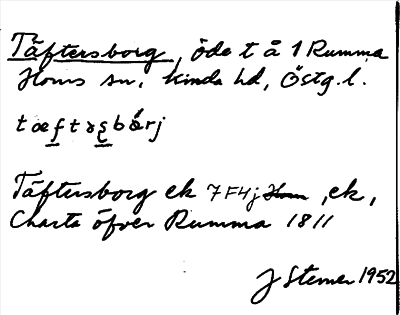 Täftersborg, öde t å 1 Rumma
Horns sn, Kinda hd, Östg.l.
tæftɤsbårj
Täftersborg ek 7F4j Horn, ek,
Charta öfver Rumma 1811
J Stemer 1952